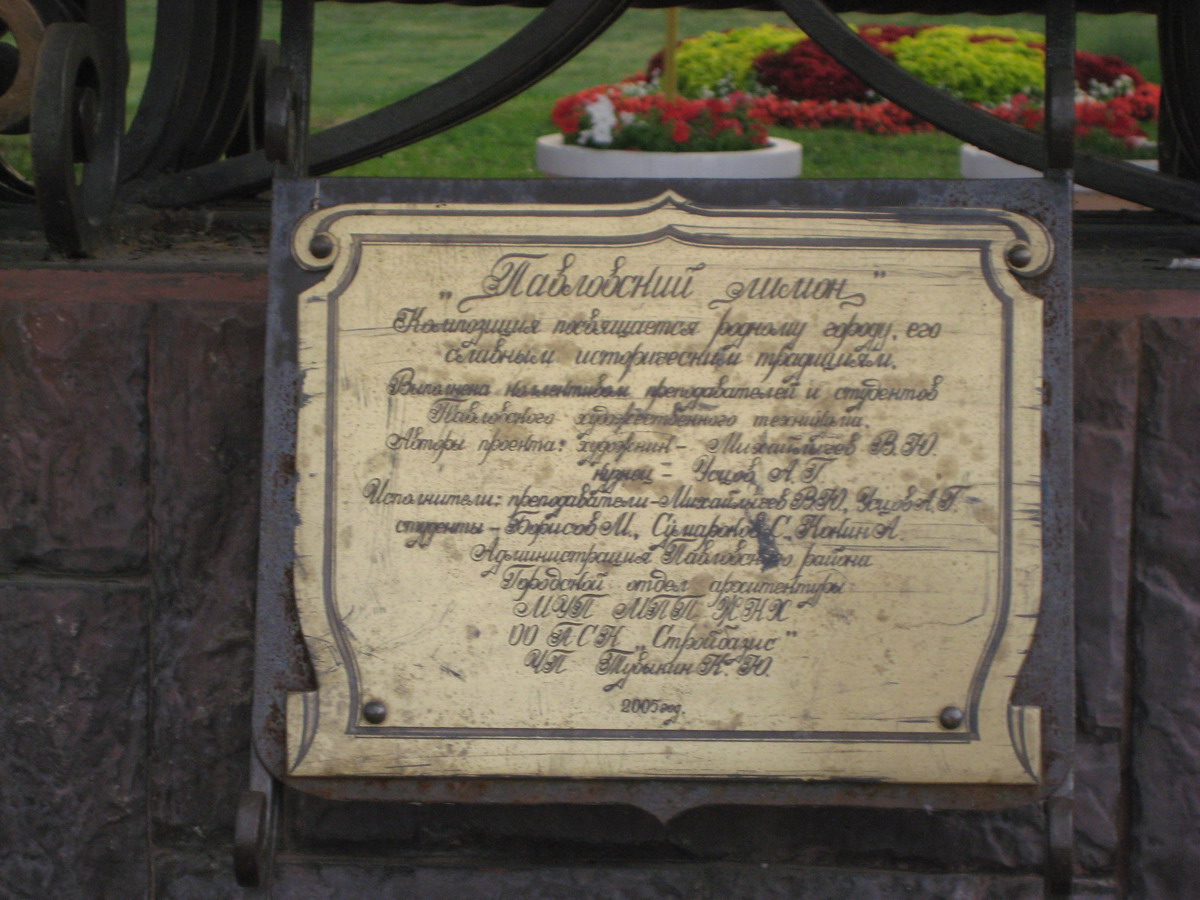 "Павловский лимон"
Композиция посвящается родному городу, его
славным историческим традициям.
Выполнена коллективом преподавателей и студентов
Павловского художественного техникума.
Авторы проекта: художник - Михайлычев В.Ю.
кузнец - Усцов А.Г.
Исполнители: преподаватели - Михайлычев В.Ю., Усцов А.Г.
студенты - Борисов М., Сумароков С., Кокин А.
Администрация Павловского района
Городской отдел архитектуры
МУП МПП ЖКХ
ОО ПСК „Стройбазис"
ЧП Тувыкин К.Ю.
2005 год.